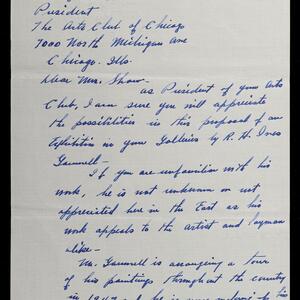 President
The Arts Club of Chicago
7000 North Michigan Ave
Chicago. Ills.
Dear Mrs. Shaw.
as President of your Arts
Club, I am sure you will appreciate
the possibilities in this proposal of an
Exhibition in your Galleries by R. H. Ives
Gammell—
If you are unfamiliar with his
work, he is not unknown or not
appreciated here in the East as his
work appeals to the artist and layman
alike—
Mr. Gammell is arranging a tour
of his paintings throughout the country
in